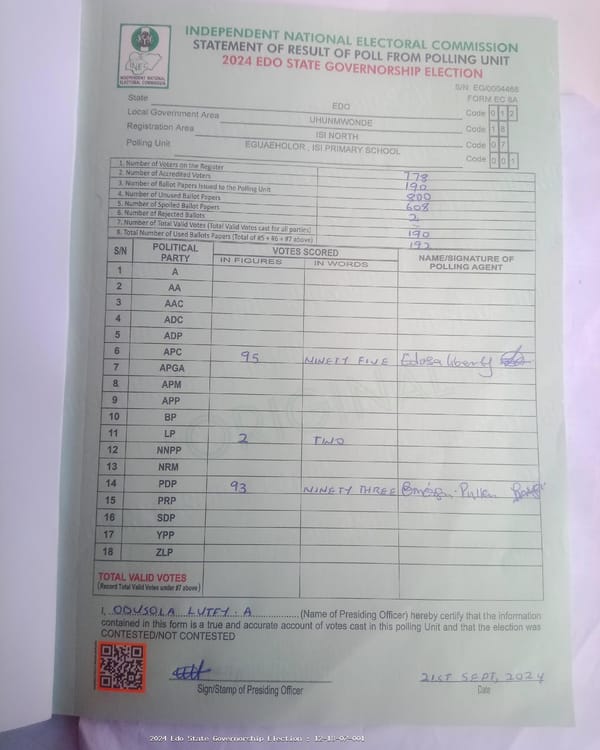 INDEPENDENT NATIONAL ELECTORAL COMMISSION
STATEMENT OF RESULT OF POLL FROM POLLING UNIT
2024 EDO STATE GOVERNORSHIP ELECTION
INEC
INDEPENDENT NATIONAL ELECTORAL COMMISSION
S/N: EG/0004468
FORM EC 8A
State EDO Code 0 1 2
Local Government Area UHUNMWONDE Code 1 8
Registration Area ISI NORTH Code 0 7
Polling Unit EGUAEHOLOR , ISI PRIMARY SCHOOL Code 0 0 1
1. Number of Voters on the Register 778
2. Number of Accredited Voters 190
3. Number of Ballot Papers Issued to the Polling Unit 800
4. Number of Unused Ballot Papers 608
5. Number of Spoiled Ballot Papers 2
6. Number of Rejected Ballots
7. Number of Total Valid Votes (Total Valid Votes cast for all parties) 190
8. Total Number of Used Ballots Papers (Total of #5 + #6 + #7 above) 192
S/N POLITICAL PARTY VOTES SCORED NAME/SIGNATURE OF POLLING AGENT
IN FIGURES IN WORDS
1 A
2 AA
3 AAC
4 ADC
5 ADP
6 APC 95 NINETY FIVE Edosa liberty
7 APGA
8 APM
9 APP
10 BP
11 LP 2 TWO
12 NNPP
13 NRM
14 PDP 93 NINETY THREE
15 PRP
16 SDP
17 YPP
18 ZLP
TOTAL VALID VOTES
(Record Total Valid Votes under #7 above)
I, ODUSOLA LUTEY. A (Name of Presiding Officer) hereby certify that the information
contained in this form is a true and accurate account of votes cast in this polling Unit and that the election was
CONTESTED/NOT CONTESTED
21ST SEPT, 2024
Sign/Stamp of Presiding Officer Date
2024 Edo State Governorship Election : 12-18-07-001